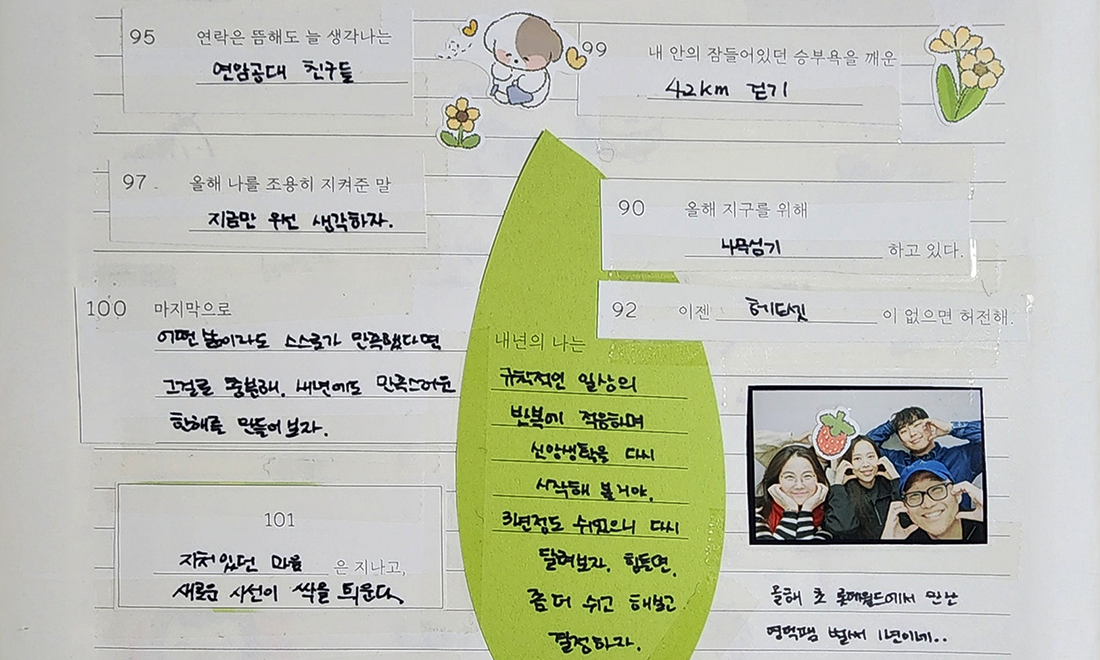 95 연락은 뜸해도 늘 생각나는
연암공대 친구들
99 내 안의 잠들어있던 승부욕을 깨운
42km 걷기
97. 올해 나를 조용히 지켜준 말
지금만 우선 생각하자.
90 올해 지구를 위해
나무심기 하고 있다.
92 이젠 헤드셋 이 없으면 허전해.
100 마지막으로
어떤 삶이라도 스스로가 만족했다면
그걸로 충분해. 내년에도 만족스러운
한해를 만들어 보자.
내년의 나는
규칙적인 일상의
반복에 적응하며
신앙생활을 다시
시작해 볼거야.
3년정도 쉬었으니 다시
달려보자. 힘들면,
좀 더 쉬고 해보고
결정하자.
101
지쳐있던 마음 은 지나고,
새로운 시선이 싹을 틔운다.
올해 초 롯데월드에서 만난
벌써 1년이네..